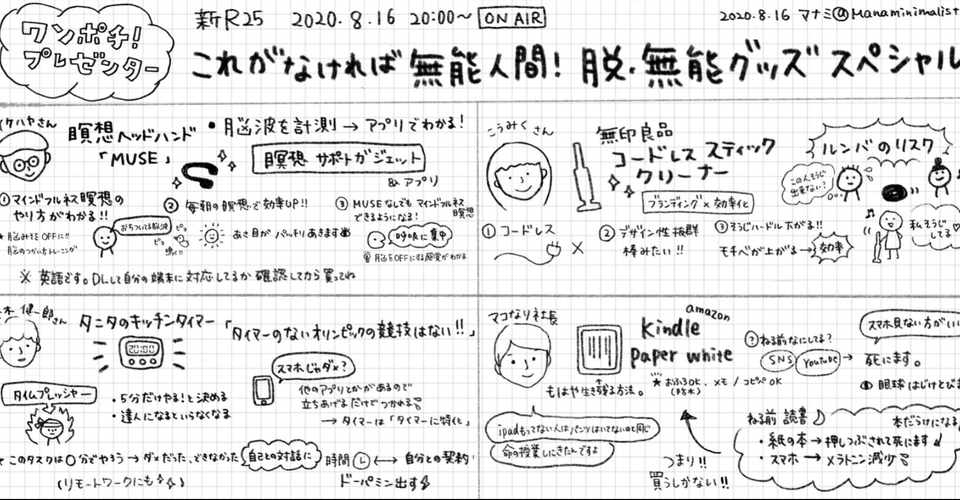 ワンポチ!
プレゼンター
新R25 2020.8.16 20:00〜 ON AIR
2020.8.16 マナミ@Manaminimalist
これがなければ無能人間! 脱・無能グッズスペシャル
イケハヤさん
瞑想ヘッドハンド
「MUSE」
・脳波を計測→アプリでわかる!
瞑想サポートガジェット
&アプリ
①マインドフルネス瞑想の
やり方がわかる!!
★脳みそをOFFに!!
脳のつかい方トレーニング
おちついてる脳波
②毎朝の瞑想で効率UP!!
あさ目がパッチリあきます
③MUSEなしでもマインドフルネス瞑想
できるようになる!
呼吸に集中
脳をOFFにする感覚がわかる
※英語です。DLして自分の端末に対応してるか確認してから買ってね
こうみくさん
無印良品
コードレススティック
クリーナー
ブランディング×効率化
①コードレス
×
②デザイン性抜群
棒みたい!!
③そうじハードル下がる!!
モチベが上がる→効率
ルンバのリスク
この人そうじ
出来ない?
私そうじ
してる♡
木健一郎さん
タニタのキッチンタイマー
「タイマーのないオリンピックの競技はない!!」
20:00
タイムプレッシャー
・5分だけやる!と決める
・達人になるといらなくなる
スマホじゃダメ?
他のアプリとかがあるので
立ちあげるだけでつかれる
→タイマーは「タイマーに特化」
このタスクは○分でやろう→ダメだった、できなかった
自己との対話に
(リモートワークにも)
時間 ←→ 自分との契約
ドーパミン出す
マコなり社長
amazon
kindle
paper white
もはや生き残る方法。
★おふろOK、メモ/コピペOK
(防水)
ipadもってない人はパンツはいてないのと同じ
命の授業しにきたんですよ
つまり!!
買うしかない!!
?ねる前なにしてる?
SNS
YouTube
→死にます。
スマホ見ない方がいい
眼球はじけとびま
ねる前読書
本だけになる
・紙の本→押しつぶされて死にます
・スマホ→メラトニン減少